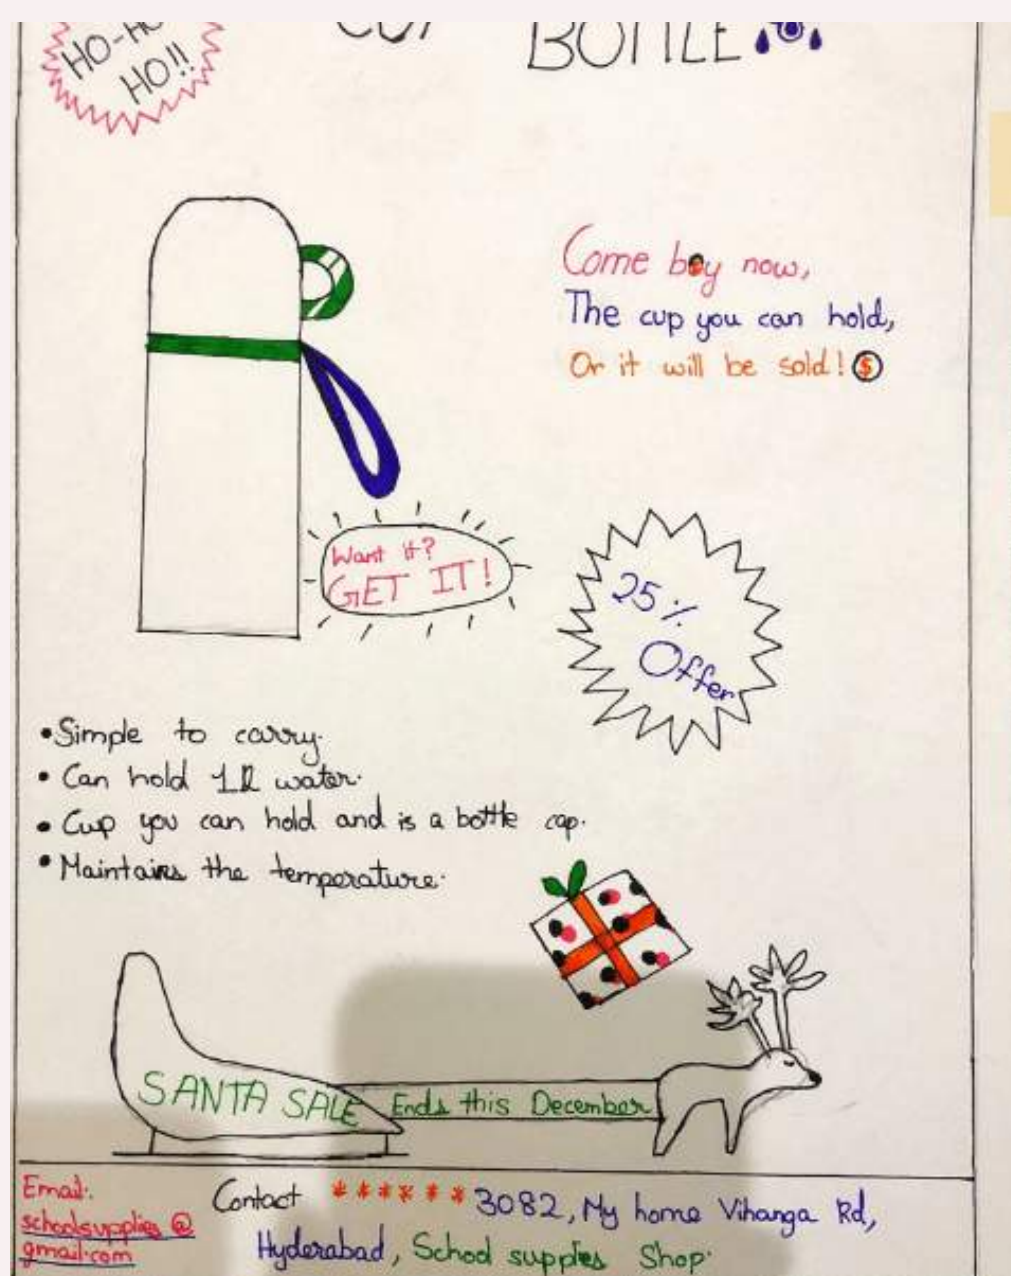 HO-HO
HO!!
CUP BOTTLE
Come buy now,
The cup you can hold,
Or it will be sold! $
Want it?
GET IT!
25%
Offer
• Simple to carry.
• Can hold 1l water.
• Cup you can hold and is a bottle cap.
• Maintains the temperature.
SANTA SALE Ends this December
Email:
schoolsupplies@
gmail.com
Contact ******3082, My home Vihanga Rd,
Hyderabad, School supplies Shop.